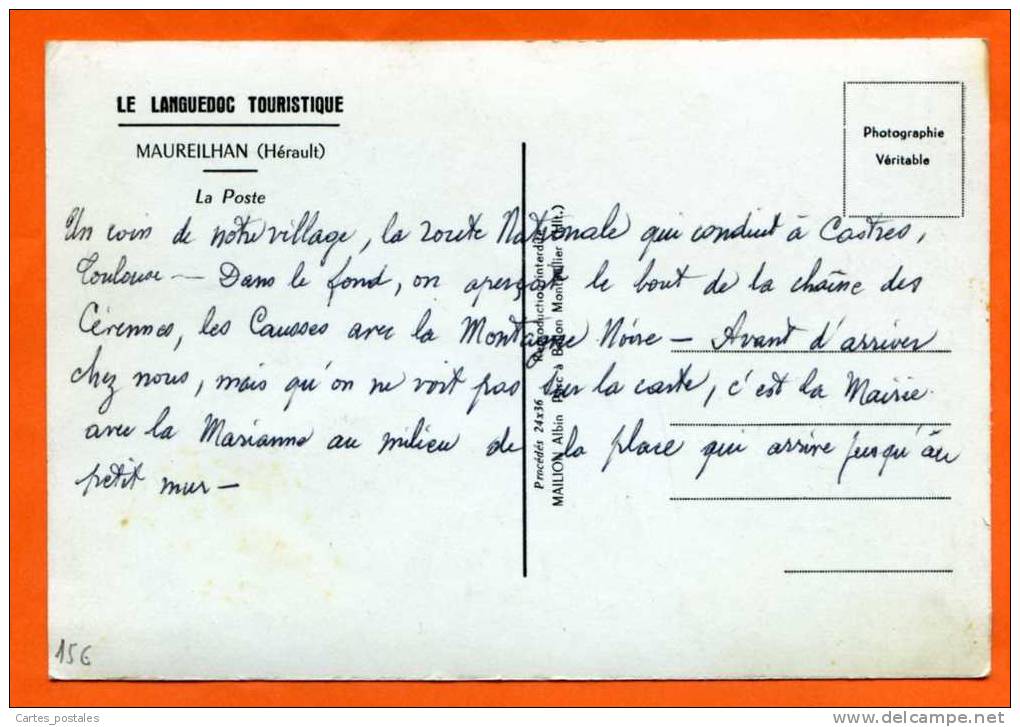 LE LANGUEDOC TOURISTIQUE
MAUREILHAN (Hérault)
La Poste
Photographie
Véritable
Un coin de notre village, la route Nationale qui conduit à Castres,
Toulouse — Dans le fond, on aperçoit le bout de la chaîne des
Cévennes, les Causses avec la Montagne Noire — Avant d'arriver
chez nous, mais qu'on ne voit pas sur la carte, c'est la Mairie
avec la Marianne au milieu de la place qui arrive jusqu'au
petit mur —
Procédés 24x36 Reproduction interdite
MAILION Albin Parc à Ballon Montpellier (Hlt.)
15€
Cartes_postales
www.delcampe.net